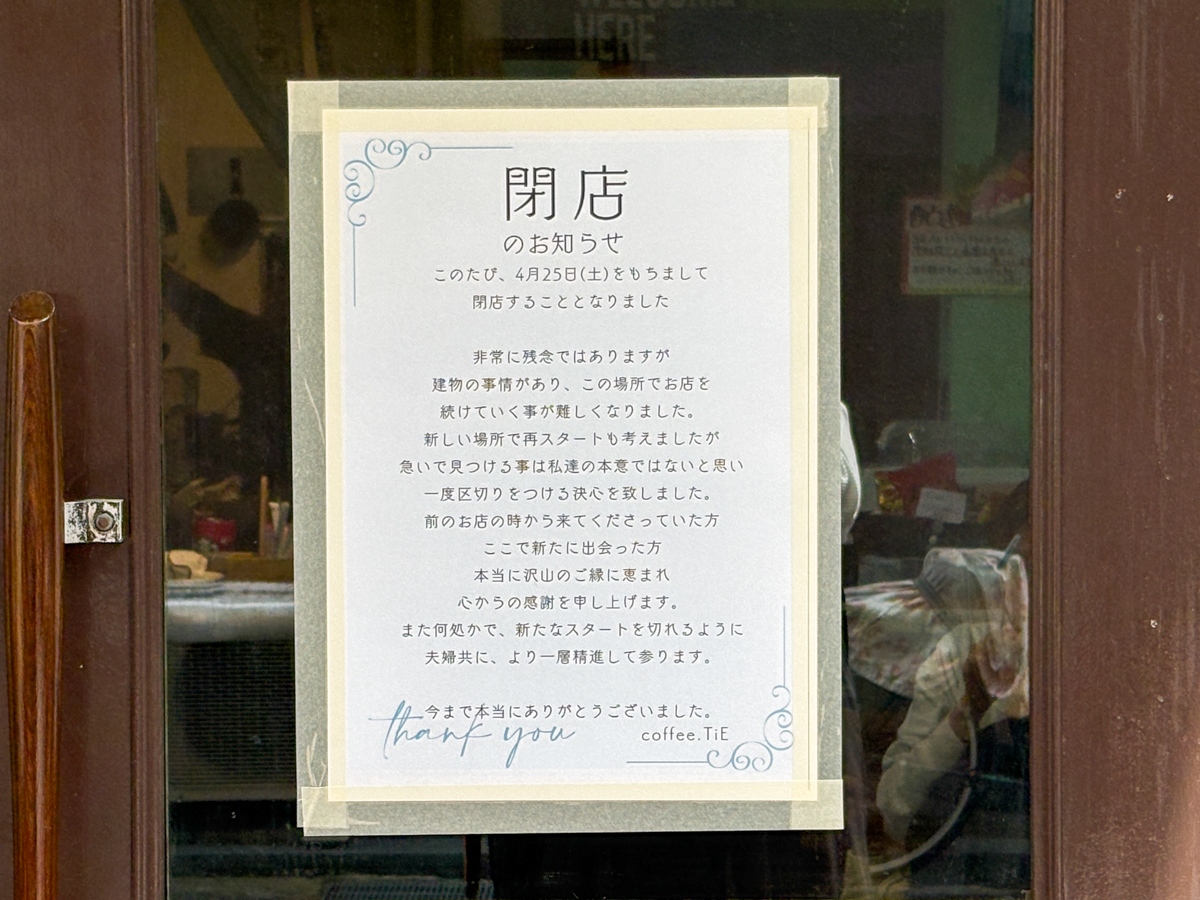 WELCOME
HERE
閉店
のお知らせ
このたび、4月25日(土)をもちまして
閉店することとなりました
非常に残念ではありますが
建物の事情があり、この場所でお店を
続けていく事が難しくなりました。
新しい場所で再スタートも考えましたが
急いで見つける事は私達の本意ではないと思い
一度区切りをつける決心を致しました。
前のお店の時から来てくださっていた方
ここで新たに出会った方
本当に沢山のご縁に恵まれ
心からの感謝を申し上げます。
また何処かで、新たなスタートを切れるように
夫婦共に、より一層精進して参ります。
今まで本当にありがとうございました。
thank you
coffee.TiE